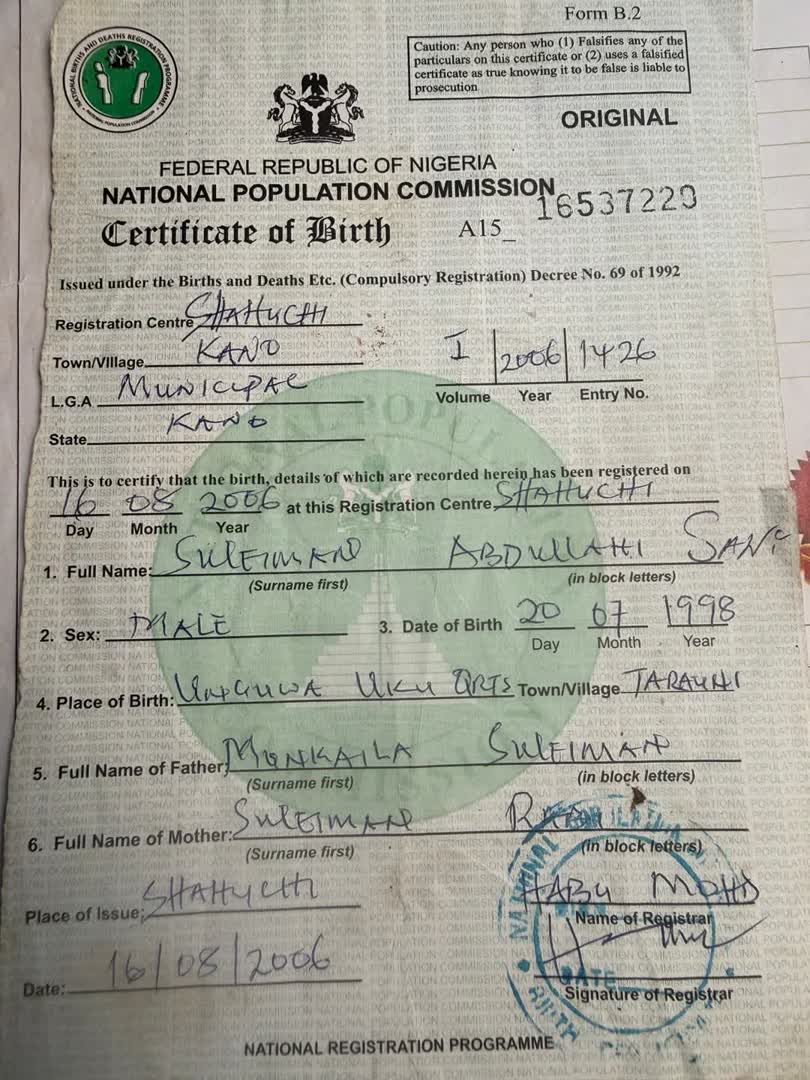 Form B.2
NATIONAL BIRTHS AND DEATHS REGISTRATION PROGRAMME
NATIONAL POPULATION COMMISSION
Caution: Any person who (1) Falsifies any of the
particulars on this certificate or (2) uses a falsified
certificate as true knowing it to be false is liable to
prosecution
ORIGINAL
FEDERAL REPUBLIC OF NIGERIA
NATIONAL POPULATION COMMISSION
Certificate of Birth A15_ 16537229
Issued under the Births and Deaths Etc. (Compulsory Registration) Decree No. 69 of 1992
Registration Centre SHAHUCHI
Town/Village KANO
L.G.A MUNICIPAL
State KANO
I 2006 1426
Volume Year Entry No.
This is to certify that the birth, details of which are recorded herein has been registered on
16 08 2006 at this Registration Centre SHAHUCHI
Day Month Year
1. Full Name: SULEIMAN ABDULLAHI SANI
(Surname first) (in block letters)
2. Sex: MALE 3. Date of Birth 20 07 1998
Day Month Year
4. Place of Birth: UNGUWA UKU QRTS Town/Village TARAUNI
5. Full Name of Father MUNKAILA SULEIMAN
(Surname first) (in block letters)
6. Full Name of Mother: SULEIMAN
(Surname first) (in block letters)
Place of Issue; SHAHUCHI
HABU MOHD
Name of Registrar
Date: 16/08/2006
Signature of Registrar
NATIONAL REGISTRATION PROGRAMME